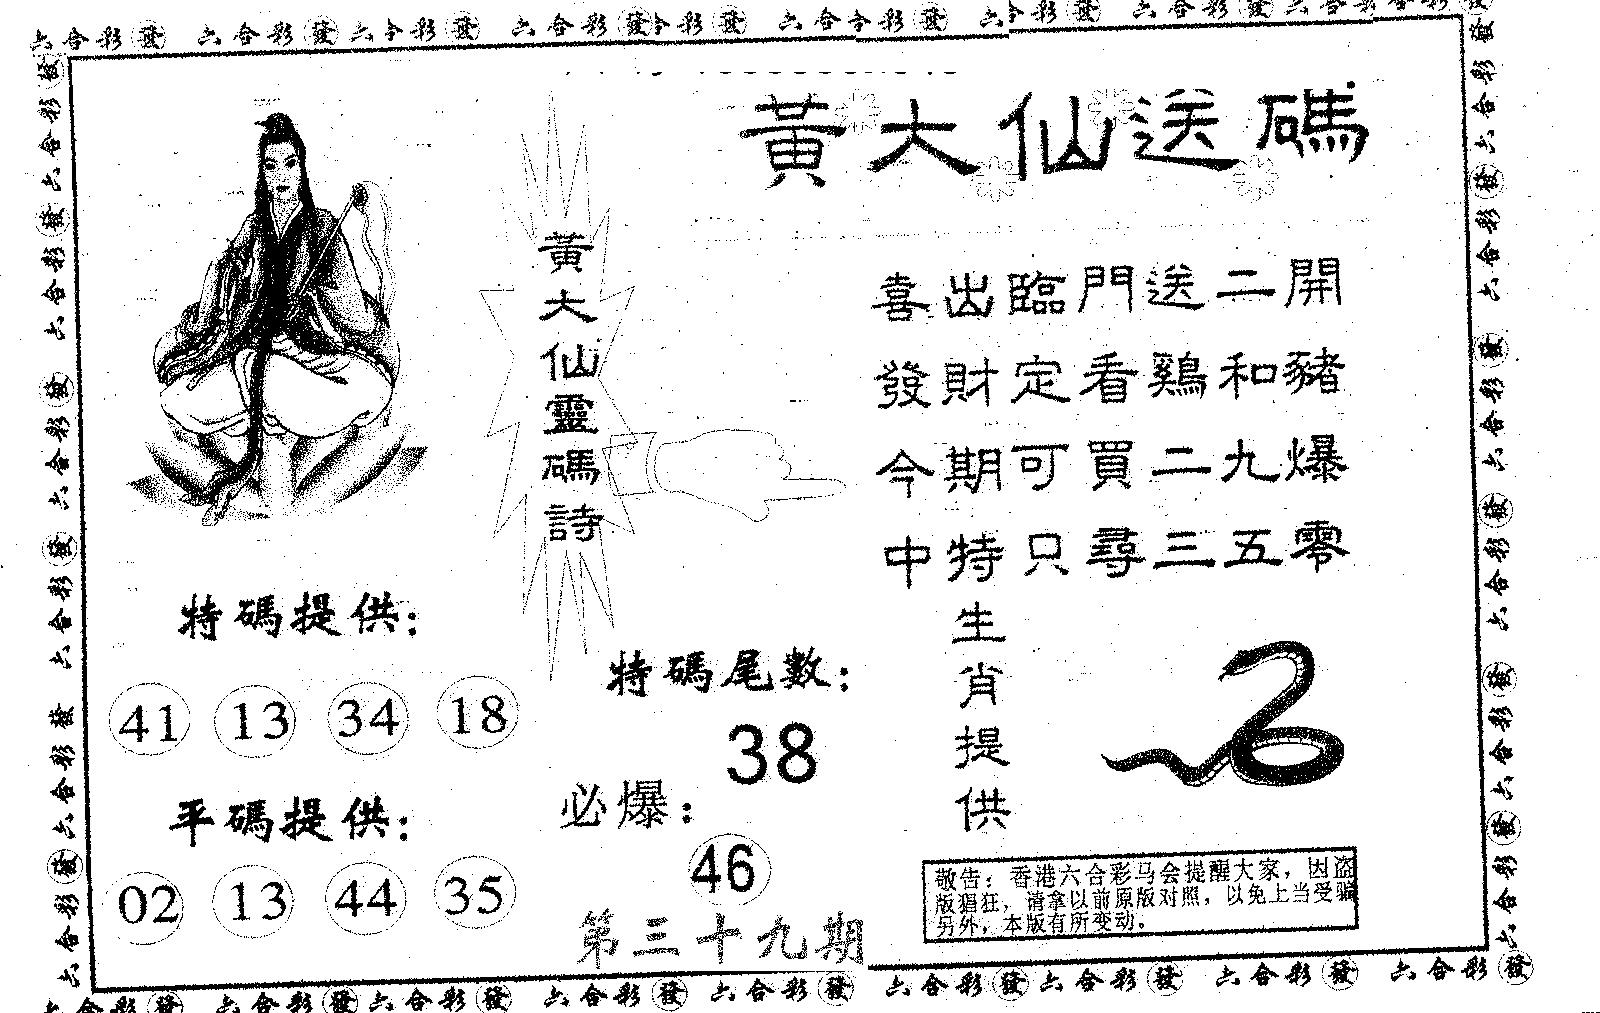 六合彩發 六合彩發 六合彩發 六合彩發 六合彩發 六合彩發 六合彩發 六合彩發
黃大仙送碼
黃大仙靈碼詩
喜出臨門送二開
發財定看鷄和豬
今期可買二九爆
中特只尋三五零
特碼提供：
41 13 34 18
平碼提供：
02 13 44 35
特碼尾數：
38
必爆：
46
第三十九期
生肖提供
敬告：香港六合彩马会提醒大家，因盗
版猖狂，请拿以前原版对照，以免上当受骗
另外，本版有所变动。
六合彩發 六合彩發 六合彩發 六合彩發 六合彩發 六合彩發 六合彩發 六合彩發 六合彩發